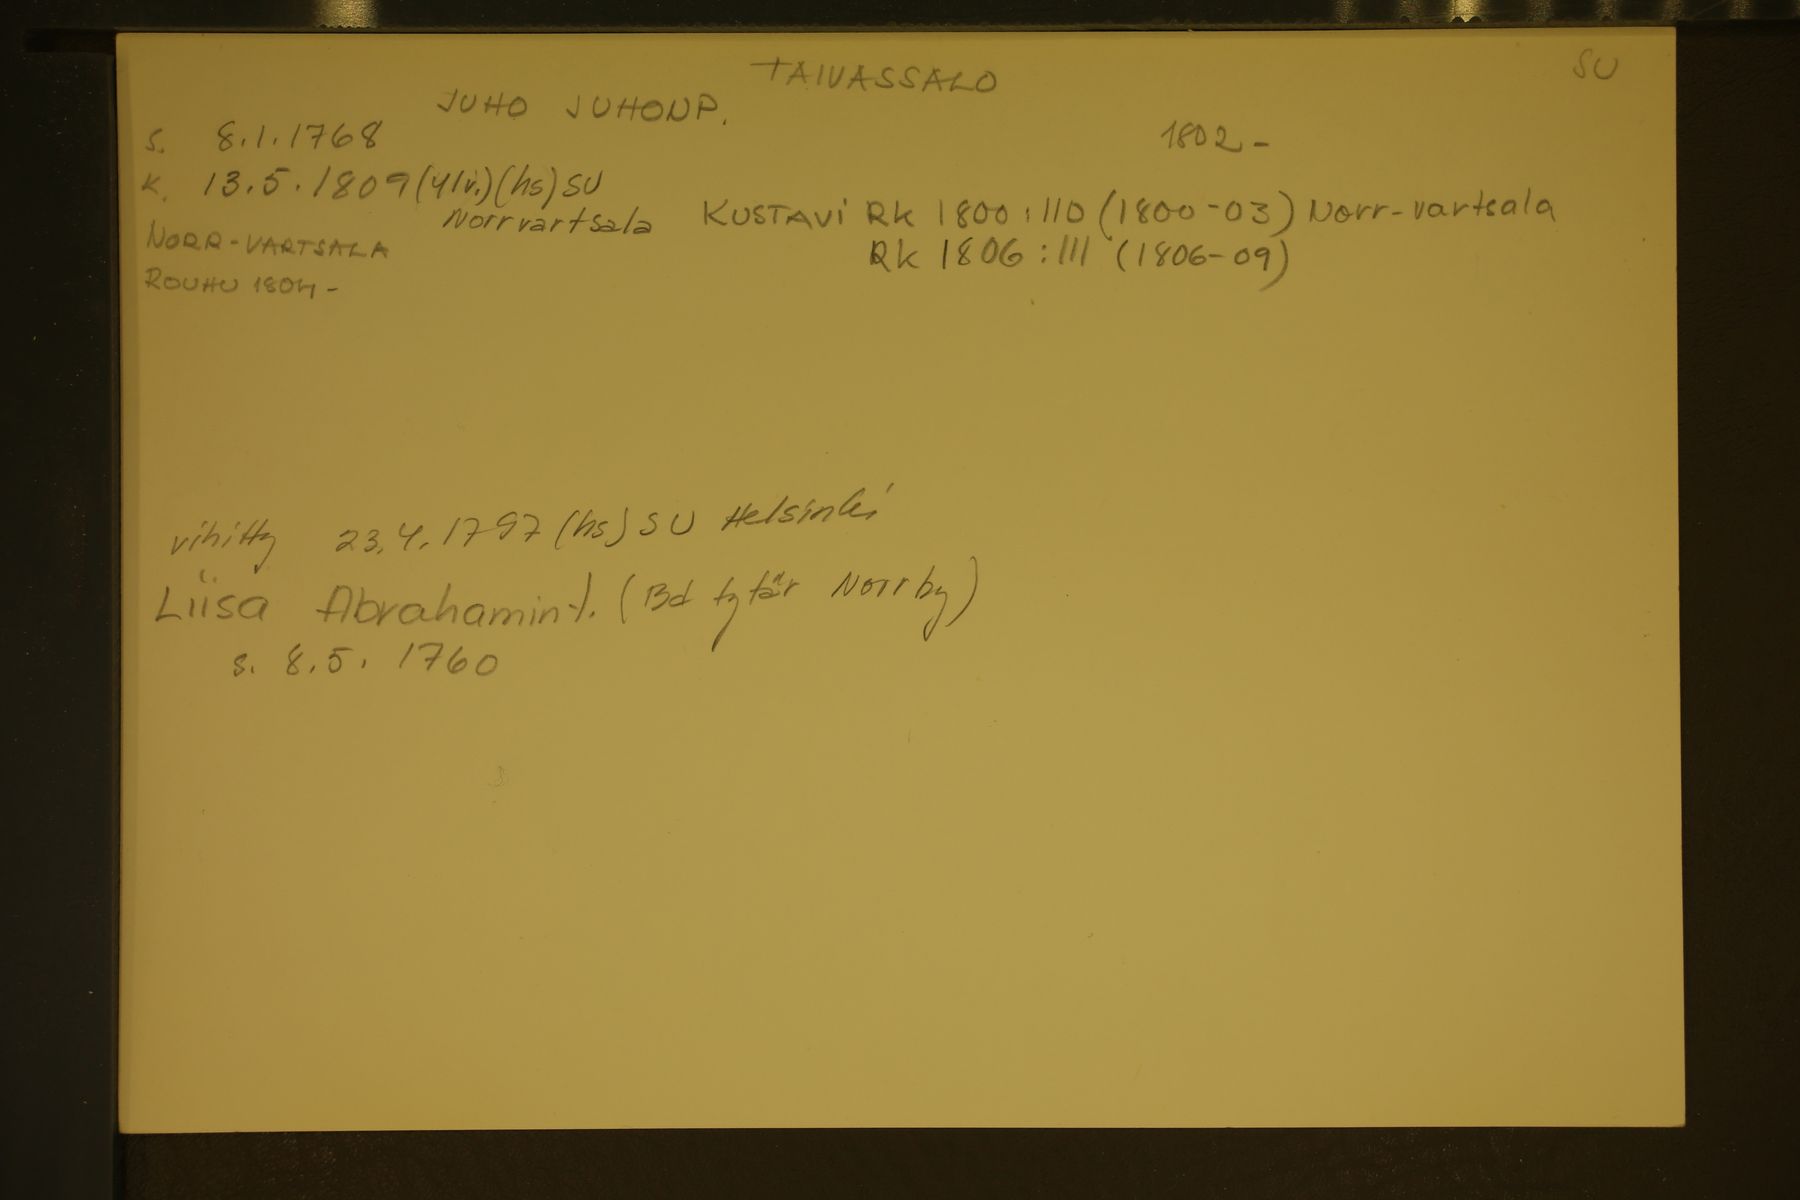 TAIVASSALO SU
JUHO JUHONP.
s. 8.1.1768 1802-
k. 13.5.1809 (41v.) (hs) SU
Norrvartsala KUSTAVI RK 1800:110 (1800-03) Norr-vartsala
NORR-VARTSALA RK 1806:111 (1806-09)
ROUHU 1804-
vihitty 23.4.1797 (hs) SU Helsinki
Liisa Abrahamin t. (Bd tytär Norrby)
s. 8.5.1760